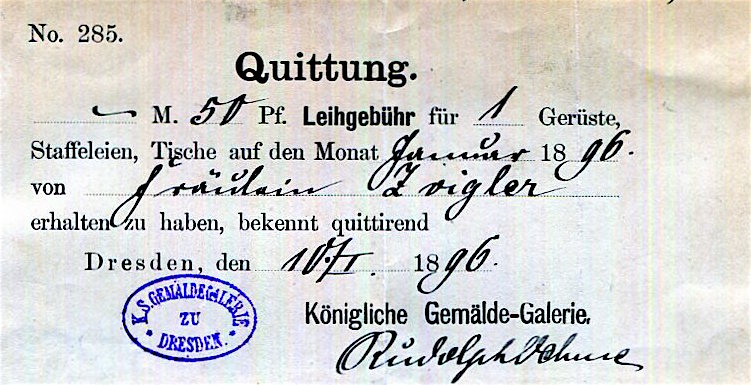 No. 285.
Quittung.
M. 50 Pf. Leihgebühr für 1 Gerüste,
Staffeleien, Tische auf den Monat Januar 1896.
von Fräulein
erhalten zu haben, bekennt quittirend
Dresden, den 10/I. 1896.
K.S. GEMÄLDEGALERIE
ZU
DRESDEN.
Königliche Gemälde-Galerie.
Rudolph